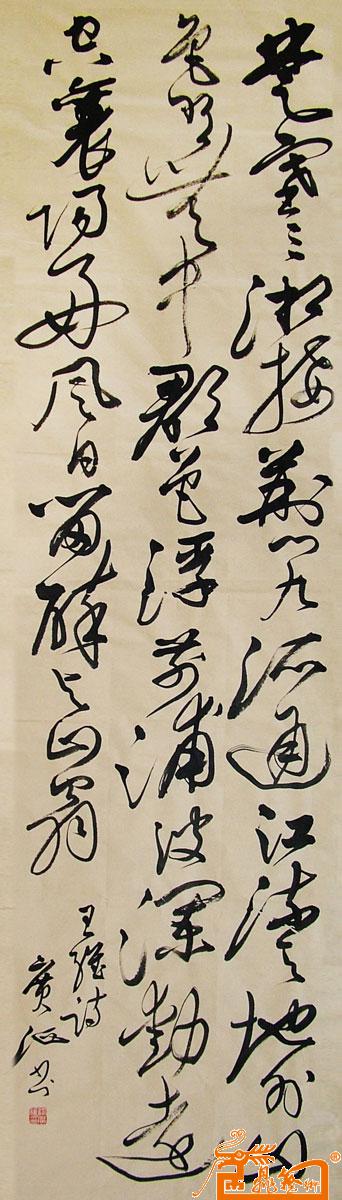 楚塞三湘接荆门九派通江流天地外山
色有无中郡邑浮前浦波澜动远
空襄阳好风日留醉与山翁
王维诗
书